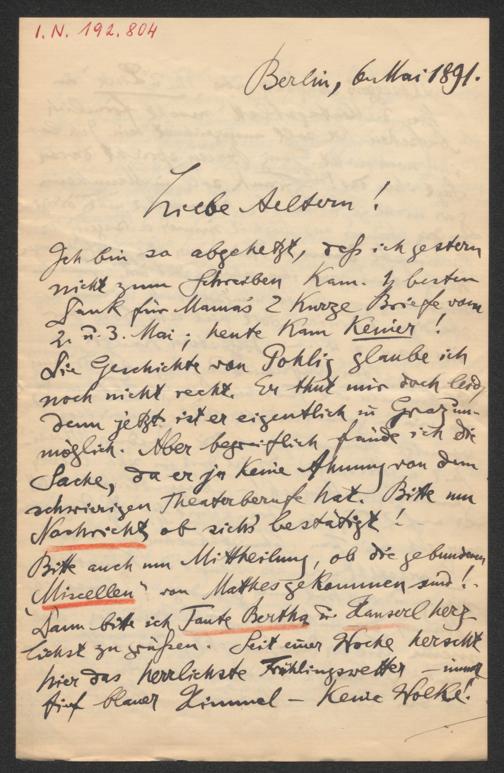 I.N. 192.804
Berlin, 6. Mai 1891.
Liebe Aeltern!
Ich bin so abgehetzt, dass ich gestern
nicht zum Schreiben kam. besten
Dank für Mama's 2 kurze Briefe vom
2. u. 3. Mai; heute kam keiner!
Die Geschichte von Pohlig glaube ich
noch nicht recht. Er thut mir doch leid,
denn jetzt ist er eigentlich in Graz un-
möglich. Aber begreiflich fände ich die
Sache, da er ja keine Ahnung von dem
schwierigen Theaterberufe hat. Bitte um
Nachricht ob sich's bestätigt!
Bitte auch um Mittheilung, ob die gebundenen
"Miscellen" von Mathes gekommen sind!
Dann bitte ich Tante Bertha u. Hanserl herz-
lichst zu grüßen. Seit einer Woche herrscht
hier das herrlichste Frühlingswetter – immer
tief blauer Himmel – keine Wolke!